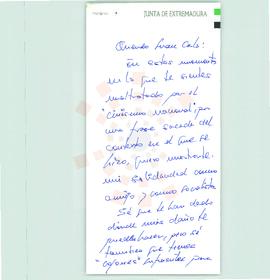 JUNTA DE EXTREMADURA
Querido Juan Carlos:
En estos momentos
en los que te sientes
maltratado por el
"cinismo nacional", por
una frase sacada del
contexto en el que se
hizo, quiero mostrarte
mi solidaridad como
amigo y como socialista
Sé que te han dado
donde más daño te
pueden hacer, pero sé
también que tienes
"cojones" suficientes para